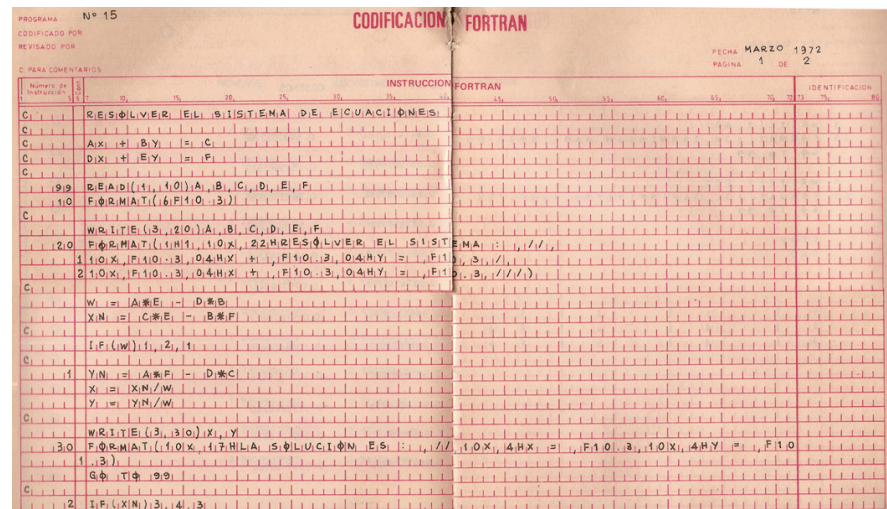 PROGRAMA Nº 15 CODIFICACION FORTRAN
CODIFICADO POR
REVISADO POR
FECHA MARZO 1972
PAGINA 1 DE 2
C: PARA COMENTARIOS
Número de Instrucción Cont. INSTRUCCION FORTRAN IDENTIFICACION
1 5 6 7 10, 15, 20, 25, 30, 35, 40, 45, 50, 55, 60, 65, 70, 72 73 75, 80
C RESØLVER EL SISTEMA DE ECUACIØNES
C
C AX + BY = C
C DX + EY = F
C
99 READ(1,10)A,B,C,D,E,F
10 FØRMAT(6F10.3)
C
WRITE(3,20)A,B,C,D,E,F
20 FØRMAT(1H1,10X,22HRESØLVER EL SISTEMA : ,//,
1 10X,F10.3,04HX + ,F10.3,04HY = ,F10.3,/,
2 10X,F10.3,04HX + ,F10.3,04HY = ,F10.3,///)
C
W = A*E - D*B
XN = C*E - B*F
C
IF(W)1,2,1
C
1 YN = A*F - D*C
X = XN/W
Y = YN/W
C
WRITE(3,30)X,Y
30 FØRMAT(10X,17HLA SØLUCIØN ES : ,//,10X,4HX = ,F10.3,10X,4HY = ,F10
1 .3)
GØ TØ 99
C
2 IF(XN)3,4,3